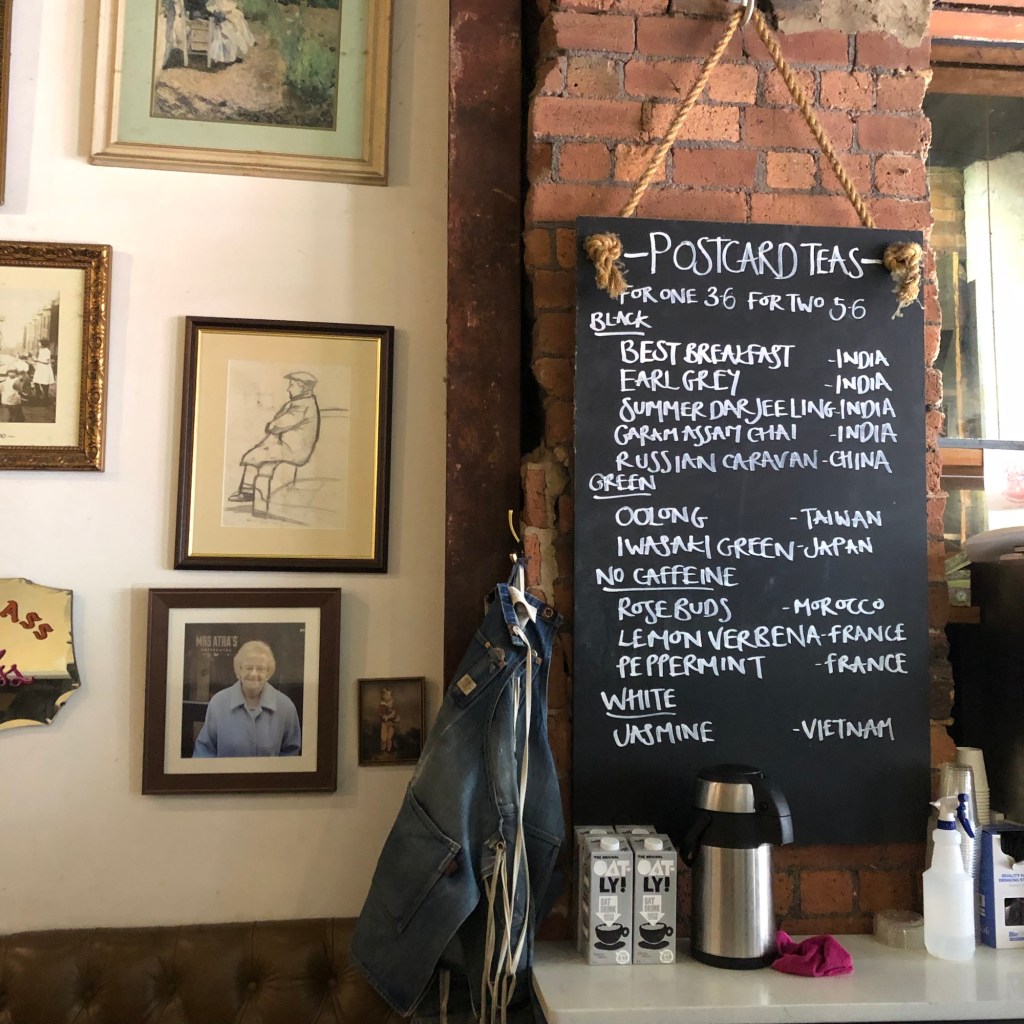 -POSTCARD TEAS-
FOR ONE 3·6 FOR TWO 5·6
BLACK
BEST BREAKFAST -INDIA
EARL GREY -INDIA
SUMMER DARJEELING-INDIA
GARAM ASSAM CHAI -INDIA
RUSSIAN CARAVAN-CHINA
GREEN
OOLONG -TAIWAN
IWASAKI GREEN-JAPAN
NO CAFFEINE
ROSE BUDS -MOROCCO
LEMON VERBENA-FRANCE
PEPPERMINT -FRANCE
WHITE
JASMINE -VIETNAM
ASS
MRS ATHA'S
THE ORIGINAL
OAT-
LY!
OAT
DRINK
THE ORIGINAL
OAT-
LY!
OAT
DRINK